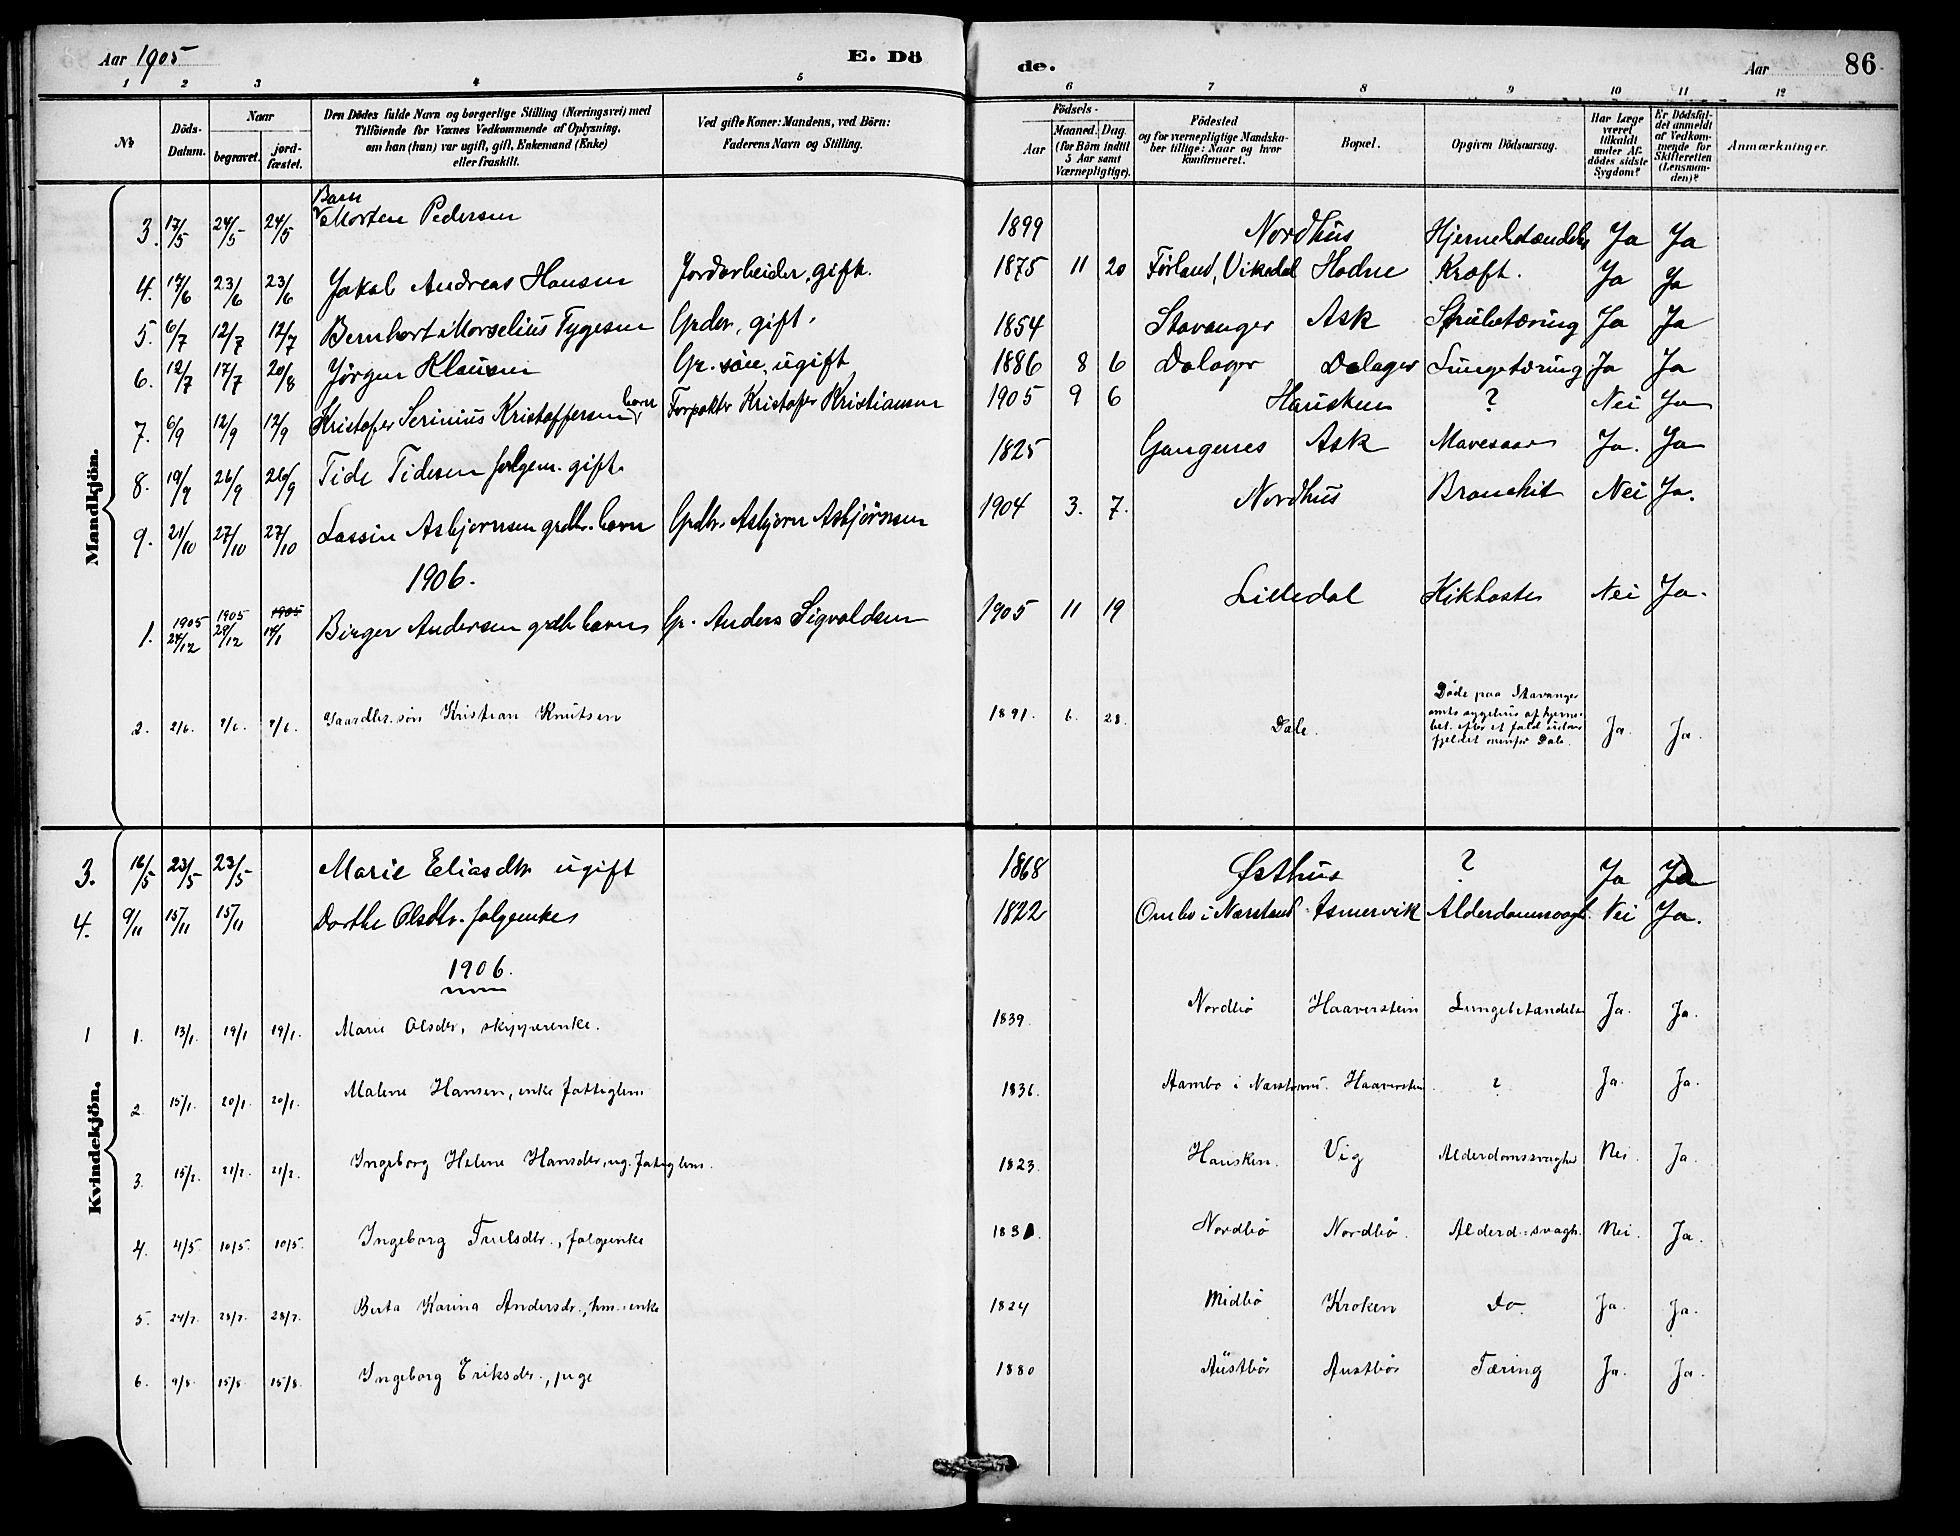 Aar 1905
E. Dö
de.
Aar
86
1 2 3 4 5 6 7 8 9 10 11 12
No
Döds-Datum.
Naar
begravet.
jord-fæstet.
Den Dødes fulde Navn og borgerlige Stilling (Næringsvei) med
Tilföiende for Voxnes Vedkommende af Oplysning,
om han (hun) var ugift, gift, Enkemand (Enke)
eller fraskilt.
Ved gifte Koner: Mandens, ved Børn:
Faderens Navn og Stilling.
Födsels-
Aar
Maaned. Dag.
(for Börn indtil
5 Aar samt
Værnepligtige).
Födested
og for værnepligtige Mandska-
ber tillige: Naar og hvor
konfirmeret.
Bopæl.
Opgiven Dödsaarsag.
Har Læge
været
tilkaldt
under Af-
dødes sidste
Sygdom?
Er Dödsfal-
det anmeldt
af Vedkom-
mende for
Skifteretten
(Lensman-
den)?
Anmærkninger.
Mandkjön.
Barn
3. 17/5 24/5 24/5 Morten Pedersen 1899 Nordhus Hjernebetændelse Ja Ja
4. 17/6 23/6 23/6 Jakob Andreas Hansen Jordarbeider, gift. 1875 11 20 Førland, Vikedal Hodne Kræft. Ja Ja
5. 6/7 12/7 12/7 Bernhart Morselius Tygesen Grdbr, gift. 1854 Stavanger Ask Strubetæring Ja Ja
6. 12/7 17/7 20/8 Jørgen Klausen Gr. søn, ugift 1886 8 6 Dalager Dalager Lungetæring Ja Ja
7. 6/9 12/9 12/9 Kristofer Serinius Kristoffersen barn Forpakter Kristofer Kristiansen 1905 9 6 Hausken ? Nei Ja
8. 19/9 26/9 26/9 Tide Tidesen folgem. gift. 1825 Gangenes Ask Mavesaar Ja. Ja
9. 21/10 27/10 27/10 Lassin Asbjørnsen grdbr. barn Grdbr. Asbjørn Asbjørnsen 1904 3. 7. Nordhus Bronchit Nei Ja.
1906.
1. 1905 24/12 1905 29/12 1905 14/1 Birger Andersen grdb barn Gr. Anders Sigvaldsen 1905 11 19 Lilledal Kikhoste Nei Ja.
2. 2/6. 7/6. 7/6. Gaardbr. søn Kristian Knutsen 1891. 6. 28. Dale. Døde paa Stavanger
amts sygehus af hjerne-
bet. efter et fald udover
fjeldet ovenfor Dale. Ja. Ja.
Kvindekjön.
3. 16/5 23/5 23/5 Marie Eliasdtr ugift 1868 Østhus ? Ja Ja
4. 9/11 15/11 15/11 Dorthe Olsdtr. folgeenke 1822 Ombo i Nærstrand Asmervik Alderdomssvagh. Nei Ja.
1906.
1 1. 13/1. 19/1 19/1. Marie Olsdtr, skipperenke. 1839. Nordbø Haaverstein Lungebetændelse Ja. Ja.
2. 15/1. 20/1. 20/1. Malene Hansen, enke fattiglem 1836. Aambo i Nærstrand. Haaverstein. ? Ja. Ja.
3. 15/2. 21/2. 21/2. Ingeborg Helene Hansdtr, ug. fattiglem. 1823. Hausken. Vig Alderdomssvaghed Nei. Ja.
4. 4/5. 10/5. 10/5. Ingeborg Truelsdtr., folgeenke 1831. Nordbø Nordbø. Alderd.svagh. Nei. Ja.
5. 24/7. 28/7. 28/7. Berta Karina Andersdr., hm.enke 1824 Midbø Kroken Do. Ja. Ja.
6. 9/8. 15/8. 15/8. Ingeborg Eriksdr., pige 1880 Austbø Austbø Tæring Ja. Ja.